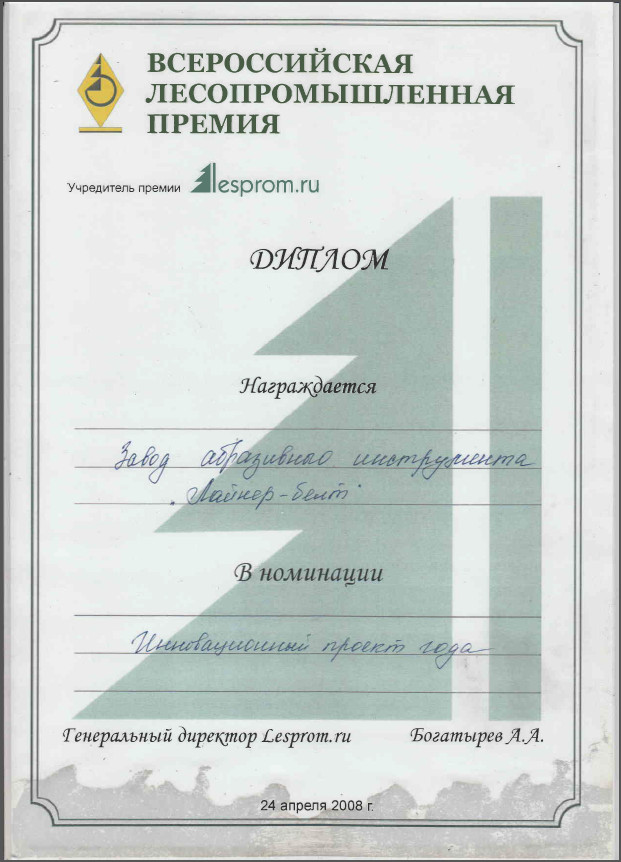 ВСЕРОССИЙСКАЯ
ЛЕСОПРОМЫШЛЕННАЯ
ПРЕМИЯ
Учредитель премии lesprom.ru
ДИПЛОМ
Награждается
Завод абразивного инструмента
"Лайнер-белт"
В номинации
Инновационный проект года
Генеральный директор Lesprom.ru Богатырев А.А.
24 апреля 2008 г.